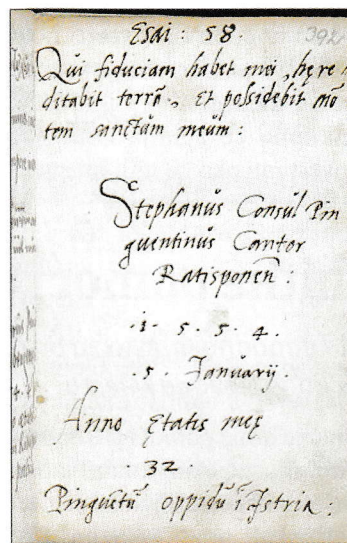 392
Esai : 58 .
Qui fiduciam habet mei, hęre
ditabit terrã, Et possidebit mõ
tem sanctum meum :
Stephanus Consul Pin
guentinus Cantor
Ratisponeñ :
. 1 . 5 . 5 . 4 .
. 5 . Januarij .
Anno Ętatis meę
. 32 .
Pinguẽtũ oppidũ ĩ Istria :